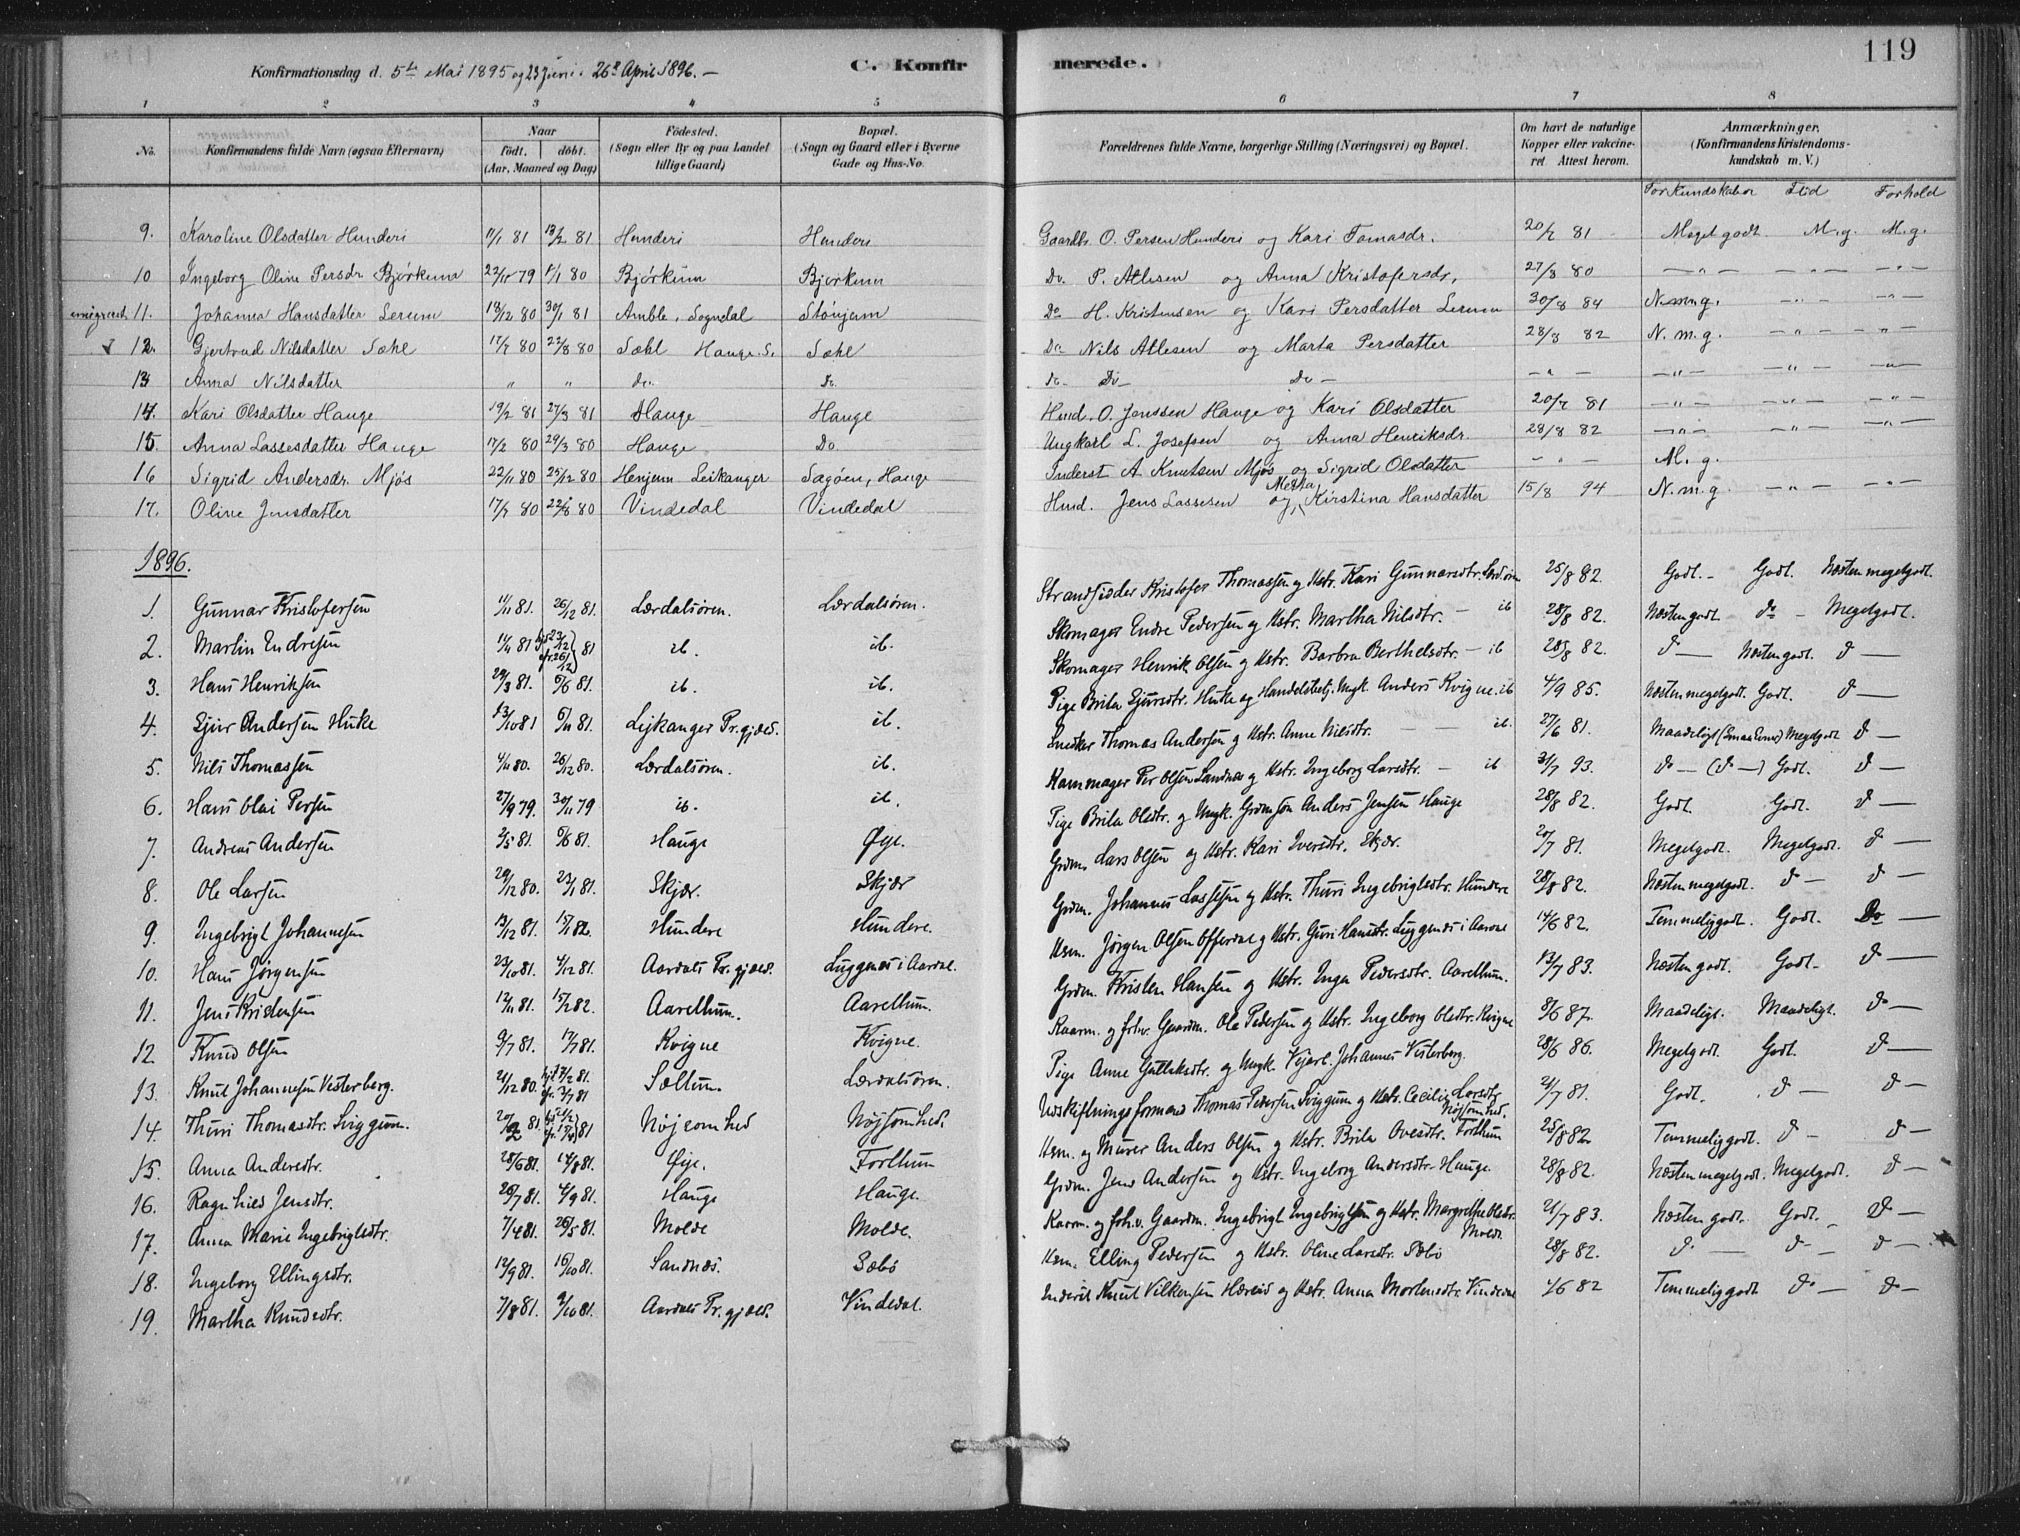 119
Konfirmationsdag d. 5te Mai 1895 og 23 Juni. 26de April 1896. — C. Konfirmerede.
1 2 3 4 5 6 7 8
No. Konfirmandens fulde Navn (ogsaa Efternavn) Naar födt. döbt. (Aar, Maaned og Dag) Födested. (Sogn eller By og paa Landet tillige Gaard) Bopæl. (Sogn og Gaard eller i Byerne Gade og Hus-No. Forældrenes fulde Navne, borgerlige Stilling (Næringsvei) og Bopæl. Om havt de naturlige Kopper eller vakcineret. Attest herom. Anmærkninger. (Konfirmandens Kristendomskundskab m. V.)
For Kundskaber Flid Forhold
9. Karoline Olsdatter Hunderi 11/1 81 13/2 81 Hunderi Hunderi Gaardbr. O. Persen Hunderi og Kari Tomasdr. 20/7 81 Meget godt M.g. M.g.
10 Ingeborg Oline Persdr Bjørkum 22/11 79 1/1 80 Bjørkum Bjørkum Do. P. Atlesen og Anna Kristofersdr. 27/8 80 — " — — " — — " —
emigreret 11. Johanna Hansdatter Lerum 19/12 80 30/1 81 Amble, Sogndal Stønjum Do H. Kristensen og Kari Persdatter Lerum 30/8 84 N.m.g. — " — — " —
12. Gjertrud Nilsdatter Sæhl 17/7 80 22/8 80 Sæhl Hauge S. Sæhl Do Nils Atlesen og Marta Persdatter 28/8 82 N.m.g. — " — — " —
13 Anna Nilsdatter " " Do. Do. Do. Do — Do — — " — — " — — " — — " —
14. Kari Olsdatter Hauge 19/2 81 27/3 81 Hauge Hauge Husd. O. Jenssen Hauge og Kari Olsdatter 20/7 81 — " — — " — — " —
15. Anna Lassesdatter Hauge 17/2 80 29/3 80 Hauge Do Ungkarl L. Josefsen og Anna Henriksdr. 28/8 82 — " — — " — — " —
16 Sigrid Andersdr. Mjøs 22/11 80 25/12 80 Henjum Leikanger Sagøen, Hauge Inderst A. Knutsen Mjøs og Sigrid Olsdatter — " — M.g.
17. Oline Jensdatter 17/7 80 22/8 80 Vindedal Vindedal Husd. Jens Lassesen og Merta Kirstina Hansdatter 15/8 94 N.m.g. — " — — " —
1896.
1. Gunnar Kristofersen 11/11 81. 26/12 81. Lærdalsøren. Lærdalsøren. Strandsidder Kristofer Thomassen og Hstr. Kari Gunnarsdtr. 25/8 82. Godt. — Godt. Næsten megetgodt.
2. Martin Endresen 11/11 81 23/12 26/12 81 ib. ib. Skomager Endre Pedersen og Hstr. Martha Nilsdtr. — ib 28/8 82. Næstengodt do — Megetgodt.
3. Hans Henriksen 29/3 81. 6/6 81. ib. ib. Skomager Henrik Olsen og Hstr. Barbra Berthelsdtr. — ib 28/8 82. do — Næstengodt. do —
4. Sjur Andersen Huke 13/10 81 6/11 81. Lejkanger Pr.gjæld. ib. Pige Brita Sjursdtr. Huke og Handelsbetj. Ungk. Anders Kvigne. ib 4/9 85. Næstenmegetgodt. Godt. do —
5. Nils Thomassen 4/11 80. 26/12 80. Lærdalsøren. ib. Snedker Thomas Andersen og Hstr. Anne Nilsdtr. — — ib. 27/6 81. Maadeligt Megetgodt do —
6. Hans Olai Persen 27/9 79. 30/11 79 ib. ib. Kammager Per Olsen Sandnæs og Hstr. Ingeborg Larsdtr. — ib 31/7 93. do — (do —) Godt. do —
7. Andreas Andersen 2/5 81. 6/6 81. Hauge Øye. Pige Brita Olsdtr. og Ungk. Grdmsøn Anders Jensen Hauge 28/8 82. Godt. Godt. do —
8. Ole Larsen 29/12 80. 23/1 81. Skjær. Skjær Grdm. Lars Olsen og Hstr. Kari Iversdtr. Skjær. 20/7 81. Megetgodt. Megetgodt. do —
9. Ingebrigt Johannesen 13/12 81. 15/1 82. Hundere Hundere. Grdm. Johannes Lassesen og Hstr. Thuri Ingebrigtsdtr. Hundere 28/8 82. Næsten megetgodt. do — do —
10. Hans Jørgensen 23/10 81. 4/12 81. Aardals Pr.gjæld. Luggenæs i Aardal. Hsm. Jørgen Olsen Offerdal og Hstr. Guri Hansdtr. Luggenæs i Aardal 14/6 82. Temmeliggodt. Godt. Do —
11. Jens Kristensen 12/11 81. 15/1 82. Aarethum. Aarethum. Grdm. Kristen Hansen og Hstr. Inga Pedersdtr. Aarethum. 13/7 83. Næstengodt. Godt. do —
12 Knud Olsen 9/7 81. 17/7 81. Kvigne Kvigne. Kaarm. og frhv. Gaardm. Ole Pedersen og Hstr. Ingeborg Olsdtr. Kvigne 8/6 87. Maadeligt. Maadeligt. do —
13. Knut Johannesen Vesterberg. 21/12 80. 17/2 81. 3/7 81 Sæltun. Lærdalsøren. Pige Anne Gulleksdtr. og Ungk. Vejarb. Johannes Vesterberg. 28/6 86. Megetgodt. Godt. do —
14. Thuri Thomasdtr. Sviggum. 20/2 81 21/2 17/4 81 Nøjsomhed Nøjsomhed. Udskiftningsformand Thomas Pedersen Sviggum og Hstr. Cecilie Larsdtr Nøjsomhed. 21/7 81. Godt. do — do —
15. Anna Andersdtr. 28/6 81. 14/8 81. Øye. Forthun Hsm. og Murer Anders Olsen og Hstr. Brita Ovesdtr. Forthun 25/8 82 Temmeliggodt. do — do —
16. Ragnhild Jensdtr. 26/7 81. 4/9 81. Hauge Hauge. Grdm. Jens Andersen og Hstr. Ingeborg Andersdtr. Hauge. 28/8 82. Næstenmegetgodt. Megetgodt. do —
17. Anna Marie Ingebrigtsdtr. 7/4 81. 26/5 81. Molde Molde. Kaarm. og frhv. Gaardm. Ingebrigt Ingebrigtsen og Hstr. Margrethe Olsdtr. Molde 21/7 83. Næstengodt. Godt. do —
18. Ingeborg Ellingsdtr. 12/9 81. 16/10 81. Sandnæs. Sæbø Hsm. Elling Pedersen og Hstr. Oline Larsdtr. Sæbø 28/8 82. do — do — do —
19. Martha Knudsdtr. 7/8 81. 2/10 81. Aardals Pr.gjæld. Vindedal. Inderst Knut Vilkensen Hæreid og Hstr. Anna Mortensdtr. Vindedal 1/6 82 Temmeliggodt do — do —